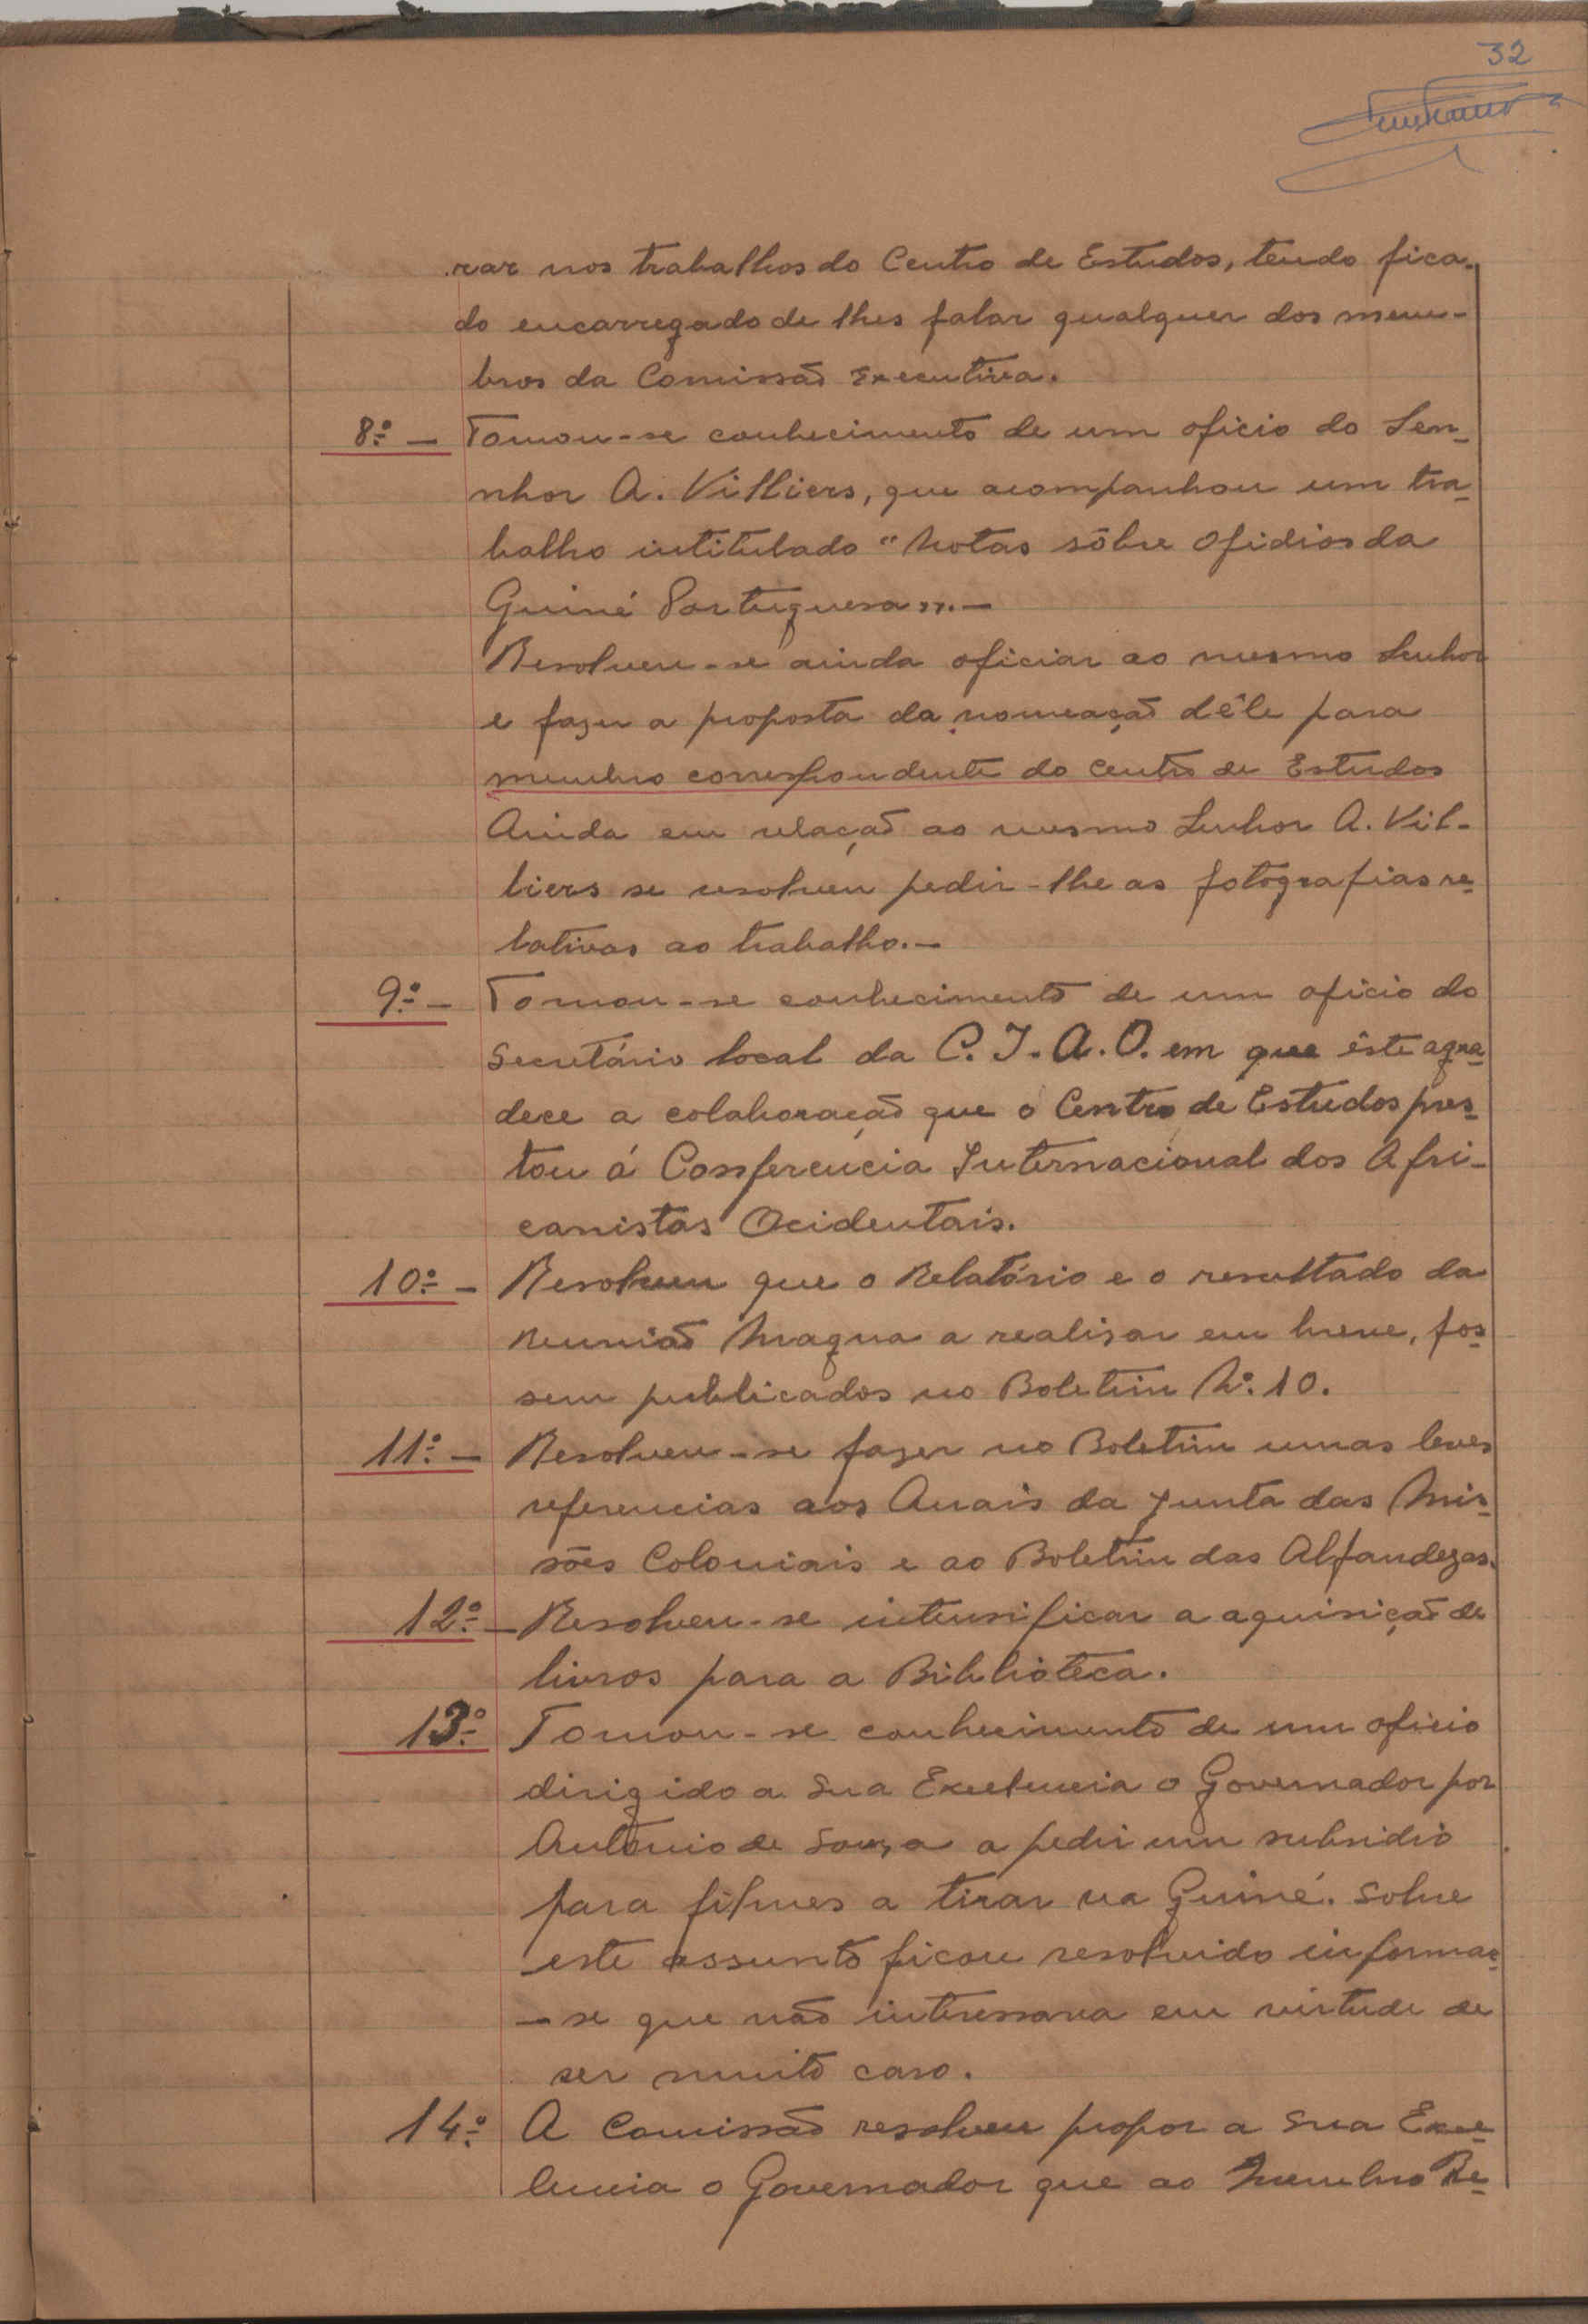 32
rar nos trabalhos do Centro de Estudos, tendo fica-
do encarregado de lhes falar qualquer dos mem-
bros da Comissão Executiva.
8.º — Tomou-se conhecimento de um oficio do Sen-
nhor A. Villiers, que acompanhou um tra-
balho intitulado "Notas sôbre Ofidios da
Guiné Portuguesa".—
Resolveu-se ainda oficiar ao mesmo Senhor
e fazer a proposta da nomeação dêle para
membro correspondente do Centro de Estudos
Ainda em relação ao mesmo Senhor A. Vil-
liers se resolveu pedir-lhe as fotografias re-
lativas ao trabalho.—
9.º — Tomou-se conhecimento de um oficio do
Secretário local da C.I.A.O. em que êste agra-
dece a colaboração que o Centro de Estudos pres-
tou á Conferencia Internacional dos Afri-
canistas Ocidentais.
10.º — Resolveu que o Relatório e o resultado da
Reunião Magna a realisar em breve, fos-
sem publicados no Boletim N.º 10.
11.º — Resolveu-se fazer no Boletim umas leves
referencias aos Anais da Junta das Mis-
sões Coloniais e ao Boletim das Alfandegas.
12.º — Resolveu-se intensificar a aquisição de
livros para a Biblioteca.
13.º Tomou-se conhecimento de um oficio
dirigido a Sua Excelencia o Governador por
António de Souza a pedir um subsidio
para filmes a tirar na Guiné. Sobre
este assunto ficou resolvido informar-
-se que não interessava em virtude de
ser muito caro.
14.º A Comissão resolveu propor a Sua Exce-
lencia o Governador que ao Membro Re-